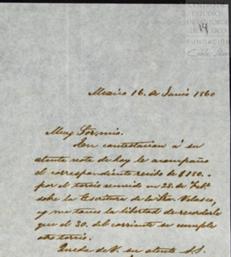 14
Mexico 16. de Junio 1860
Muy Sr. mio.
En contestacion á su
atenta nota de hoy le acompaño
el correspondiente recibo de $150.-
por el tercio vencido en 28. de Feb.º
sobre la Escritura de la Sra. Velasco,
y me tomo la libertad de recordarle
que el 30. del corriente se cumple
otro tercio.
Queda de V. su atento S.S.